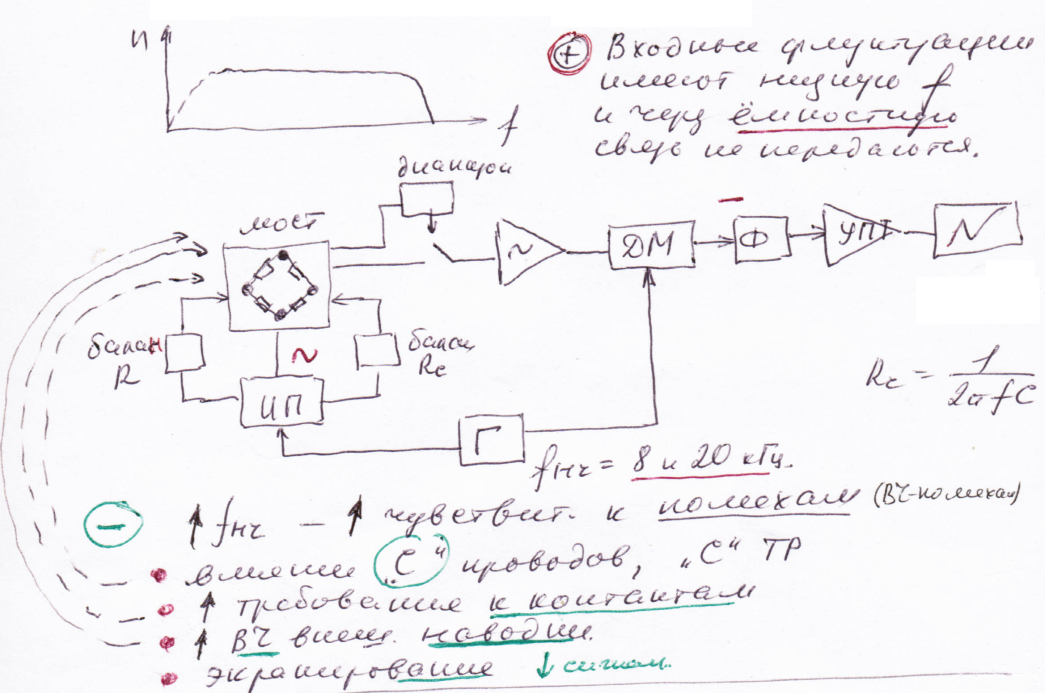 И
f
⊕ Входные флуктуации
имеют низкую f
и через ёмкостную
связь не передаются.
диапазон
мост
~
ДМ
Ф
УПТ
балан
R
~
баланс
Rc
ИП
Г
Rc = 1 / 2πfC
fнч = 8 и 20 кГц.
⊖ ↑ fнч – ↑ чувствит. к помехам (ВЧ-помехам)
• влияние "С" проводов, "С" ТР
• ↑ требование к контактам
• ↑ ВЧ внеш. наводки.
• экранирование ↓ сигнал.